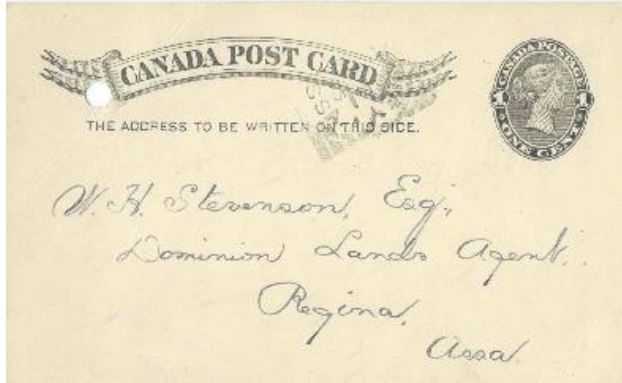 CANADA POST CARD
CANADA POSTAGE
1 1
ONE CENT
THE ADDRESS TO BE WRITTEN ON THIS SIDE.
W. H. Stevenson, Esq,
Dominion Lands Agent.
Regina,
Assa.